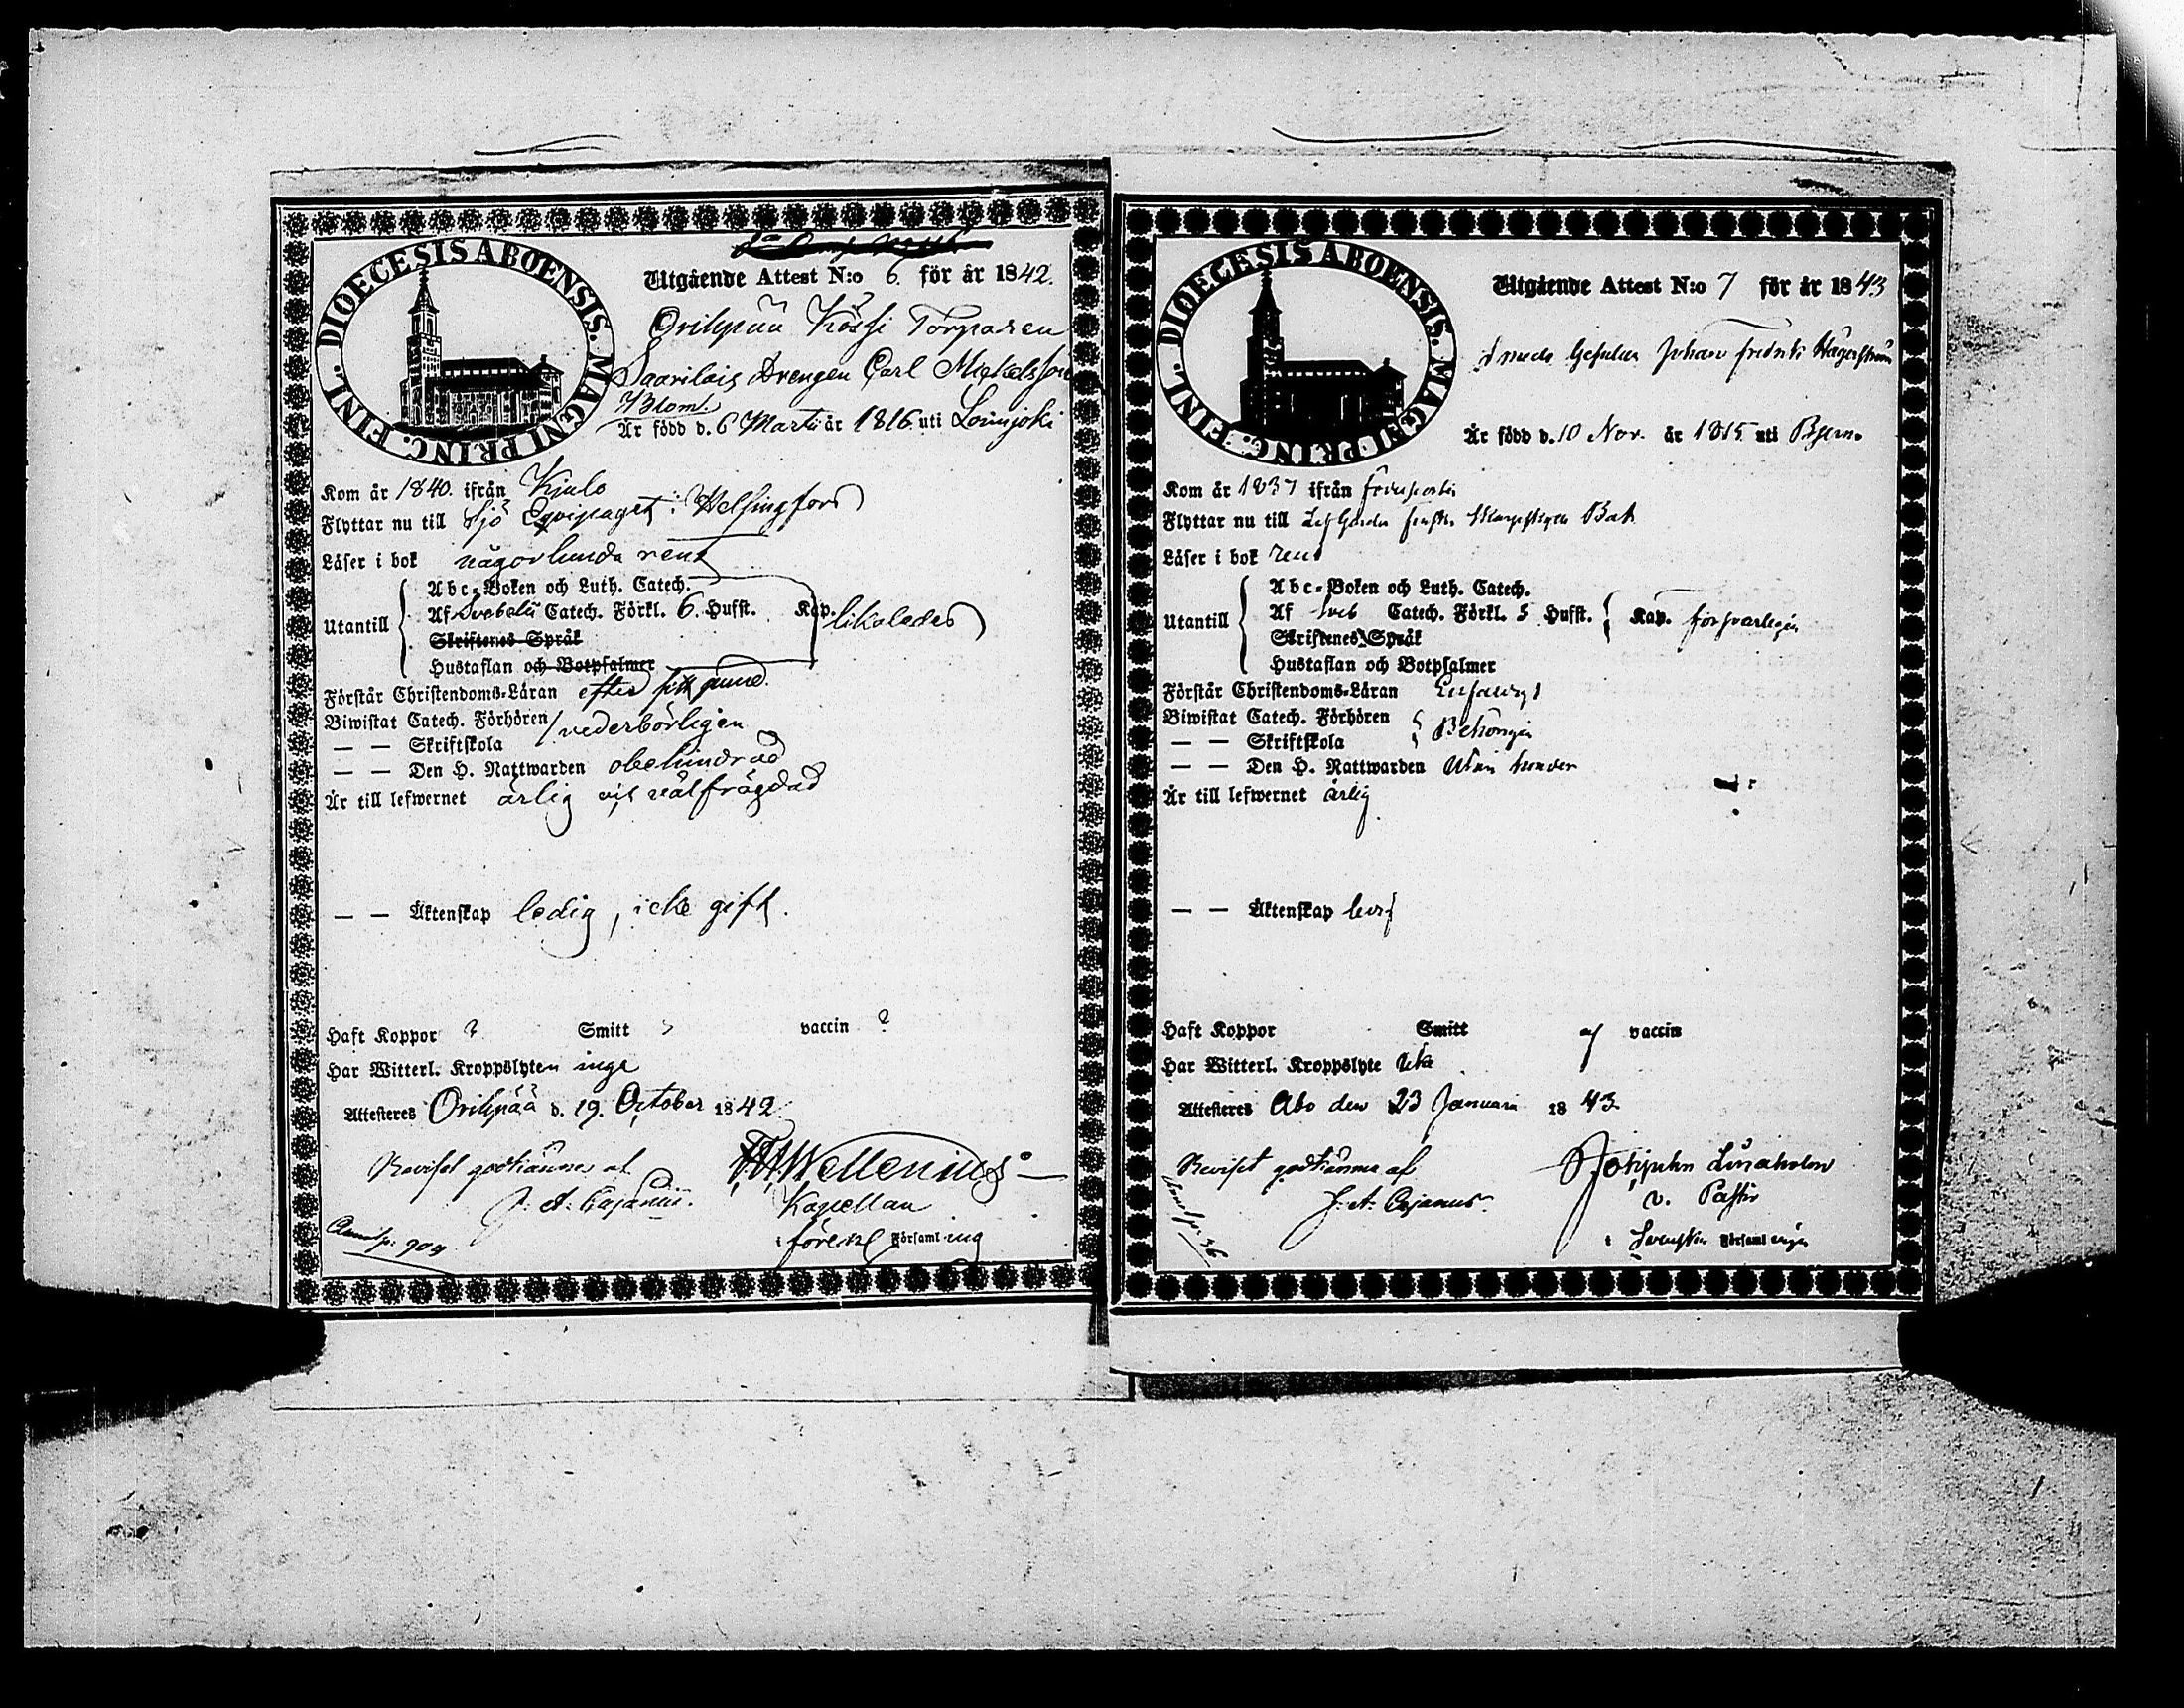 DIOECESIS ABOENSIS. MAGNI PRINC. FINL.
Utgående Attest N:o 6. för år 1842.
Oripää Kössi Torparen
Saarilais Drengen Carl Mickelsson
Blom.
Är född d. 6 Martii år 1816. uti Loimjoki
Kom år 1840. ifrån Kjulo
Flyttar nu till Sjö Eqvipaget i Helsingfors
Läser i bok någorlunda rent
Abc-Boken och Luth. Catech.
Utantill Af Svebelii Catech. Förkl. 6. Hufst. Kap. likaledes
Skriftenes Språk
Hustaflan och Botpsalmer
Förstår Christendoms-Läran efter sitt
Biwistat Catech. Förhören vederbörligen
— — Skriftskola
— — Den H. Nattwarden obehindrad
Är till lefwernet ärlig välfrägdad
— — Äktenskap ledig, icke gift.
Haft Koppor ? Smitt ? vaccin ?
Har Witterl. Kroppslyten inga
Attesteres Oripää d. 19. October 1842.
Revisit godkännes af Wellenius
J. A. Cajanus. Kapellan
909 i förene Församl ing
DIOECESIS ABOENSIS. MAGNI PRINC. FINL.
Utgående Attest N:o 7 för år 1843
Gesällen Johan Fredrik Hägerström
Är född d. 10 Nov. år 1815 uti Bjerno
Kom år 1837 ifrån
Flyttar nu till Bat.
Läser i bok rent
Abc-Boken och Luth. Catech.
Utantill Af Sveb Catech. Förkl. 5 Hufst. Kap. försvarligen
Skriftenes Språk
Hustaflan och Botpsalmer
Förstår Christendoms-Läran
Biwistat Catech. Förhören Behörigen
— — Skriftskola
— — Den H. Nattwarden Utan hinder
Är till lefwernet ärlig
— — Äktenskap ledig
Haft Koppor Smitt af vaccin
Har Witterl. Kroppslyte Utan
Attesteres Åbo den 23 Januari 1843
Revisit godkännes af
J. A. Cajanus. v. Pastor
i Svenska Församl ingen